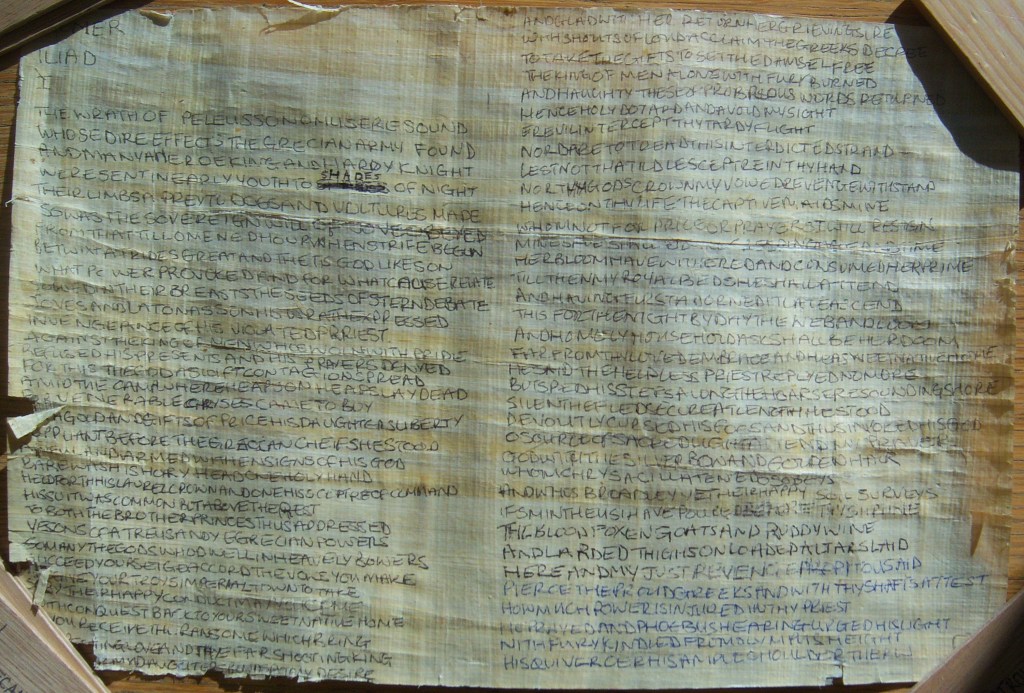 ILIAD
I
THE WRATH OF PELEUS SON O MUSE RESOUND
WHOSE DIRE EFFECTS THE GRECIAN ARMY FOUND
AND MANY A HEROE KING AND HARDY KNIGHT
WERE SENT IN EARLY YOUTH TO SHADES OF NIGHT
THEIR LIMBS A PREY TO DOGS AND VULTURES MADE
SO WAS THE SOVEREIGN WILL OF JOVE OBEYED
FROM THAT ILL OMENED HOUR WHEN STRIFE BEGUN
BETWIXT ATRIDES GREAT AND THETIS GOD LIKE SON
WHAT POWER PROVOKED AND FOR WHAT CAUSE RELATE
SOWED IN THEIR BREASTS THE SEEDS OF STERN DEBATE
JOVES AND LATONAS SON HIS WRATH EXPRESSED
IN VENGEANCE OF HIS VIOLATED PRIEST
AGAINST THE KING OF MEN WHO SWOLN WITH PRIDE
REFUSED HIS PRESENTS AND HIS PRAYERS DENIED
FOR THIS THE GOD A SWIFT CONTAGION SPREAD
AMID THE CAMP WHERE HEAPS ON HEAPS LAY DEAD
VENERABLE CHRYSES CAME TO BUY
GOLD AND GIFTS OF PRICE HIS DAUGHTERS LIBERTY
SUPPLIANT BEFORE THE GRECIAN CHEIFS HE STOOD
AND ARMED WITH ENSIGNS OF HIS GOD
BARE WAS HIS HORY HEAD ONE HOLY HAND
HELD FORTH HIS LAUREL CROWN AND ONE HIS SCEPTRE OF COMMAND
HIS SUIT WAS COMMON BUT ABOVE THE REST
TO BOTH THE BROTHER PRINCES THUS ADDRESSED
YE SONS OF ATREUS AND YE GRECIAN POWERS
SO MAY THE GODS WHO DWELL IN HEAVELY BOWERS
SUCCEED YOUR SEIGE ACCORD THE VOWS YOU MAKE
YOUR TROYS IMPERIAL TOWN TO TAKE
BY THEIR HAPPY CONDUCT MAY
WITH CONQUEST BACK TO YOUR SWEET NATIVE HOME
YOU RECEIVE THE RANSOME WHICH I BRING
LOVE AND THE FAR SHOOTING KING
MY DAUGHTER DESIRE
AND GLAD WITH HER RETURN HER GRIEVING SIRE
WITH SHOUTS OF LOUD ACCLAIM THE GREEKS DECREE
TO TAKE THE GIFTS TO SET THE DAMSEL FREE
THE KING OF MEN ALONE WITH FURY BURNED
AND HAUGHTY THESE OPPROBRIOUS WORDS RETURNED
HENCE HOLY DOTARD AND AVOID MY SIGHT
ERE EVIL INTERCEPT THY TARDY FLIGHT
NOR DARE TO TREAD THIS INTERDICTED STRAND
LEST NOT THAT IDLE SCEPTRE IN THY HAND
NOR THY GODS CROWN MY VOWED REVENGE WITHSTAND
HENCE ON THY LIFE THE CAPTIVE MAIDS MINE
WHOM NOT FOR PRICE OR PRAYERS I WILL RESIGN
MINE SHE SHALL
HER BLOOM HAVE WITHERED AND CONSUMED HER PRIME
TILL THEN MY ROYAL BED SHE SHALL ATTEND
AND HAVING FIRST ADORNED IT LATE ASCEND
THIS FOR THE NIGHT BY DAY THE WEB AND LOOM
AND HOMELY HOUSEHOLD TASKS SHALL BE HER DOOM
FAR FROM THY LOVED EMBRACE AND HER SWEET NATIVE HOME
HE SAID THE HELPLESS PRIEST REPLYED NO MORE
BUT SPED HIS STEPS ALONG THE HOARSE RESOUNDING SHORE
SILENT HE FLED SECURE AT LENGTH HE STOOD
DEVOUTLY CURSED HIS FOES AND THUS INVOKED HIS GOD
O SOURCE OF SACRED LIGHT ATTEND MY PRAYER
GOD WITH THE SILVER BOW AND GOLDEN HAIR
WHOM CHRYSA CILLA TENEDOS OBEYS
AND WHOS BROAD EYE THE HAPPY SOIL SURVEYS
IF SMINTHEUS I HAVE POURED BEFORE THY SHRINE
THE BLOOD OF OXEN GOATS AND RUDDY WINE
AND LARDED THIGHS ON LOADED ALTARS LAID
HERE AND MY JUST REVENGE PROPITIOUS AID
PIERCE THE PROUD GREEKS AND WITH THY SHAFTS ATTEST
HOW MUCH POWER IS INJURED IN THY PRIEST
HE PRAYED AND PHOEBUS HEARING URGED HIS FLIGHT
WITH FURY KINDLED FROM OLYMPUS HEIGHT
HIS QUIVER OER HIS AMPLE SHOULDER THREW